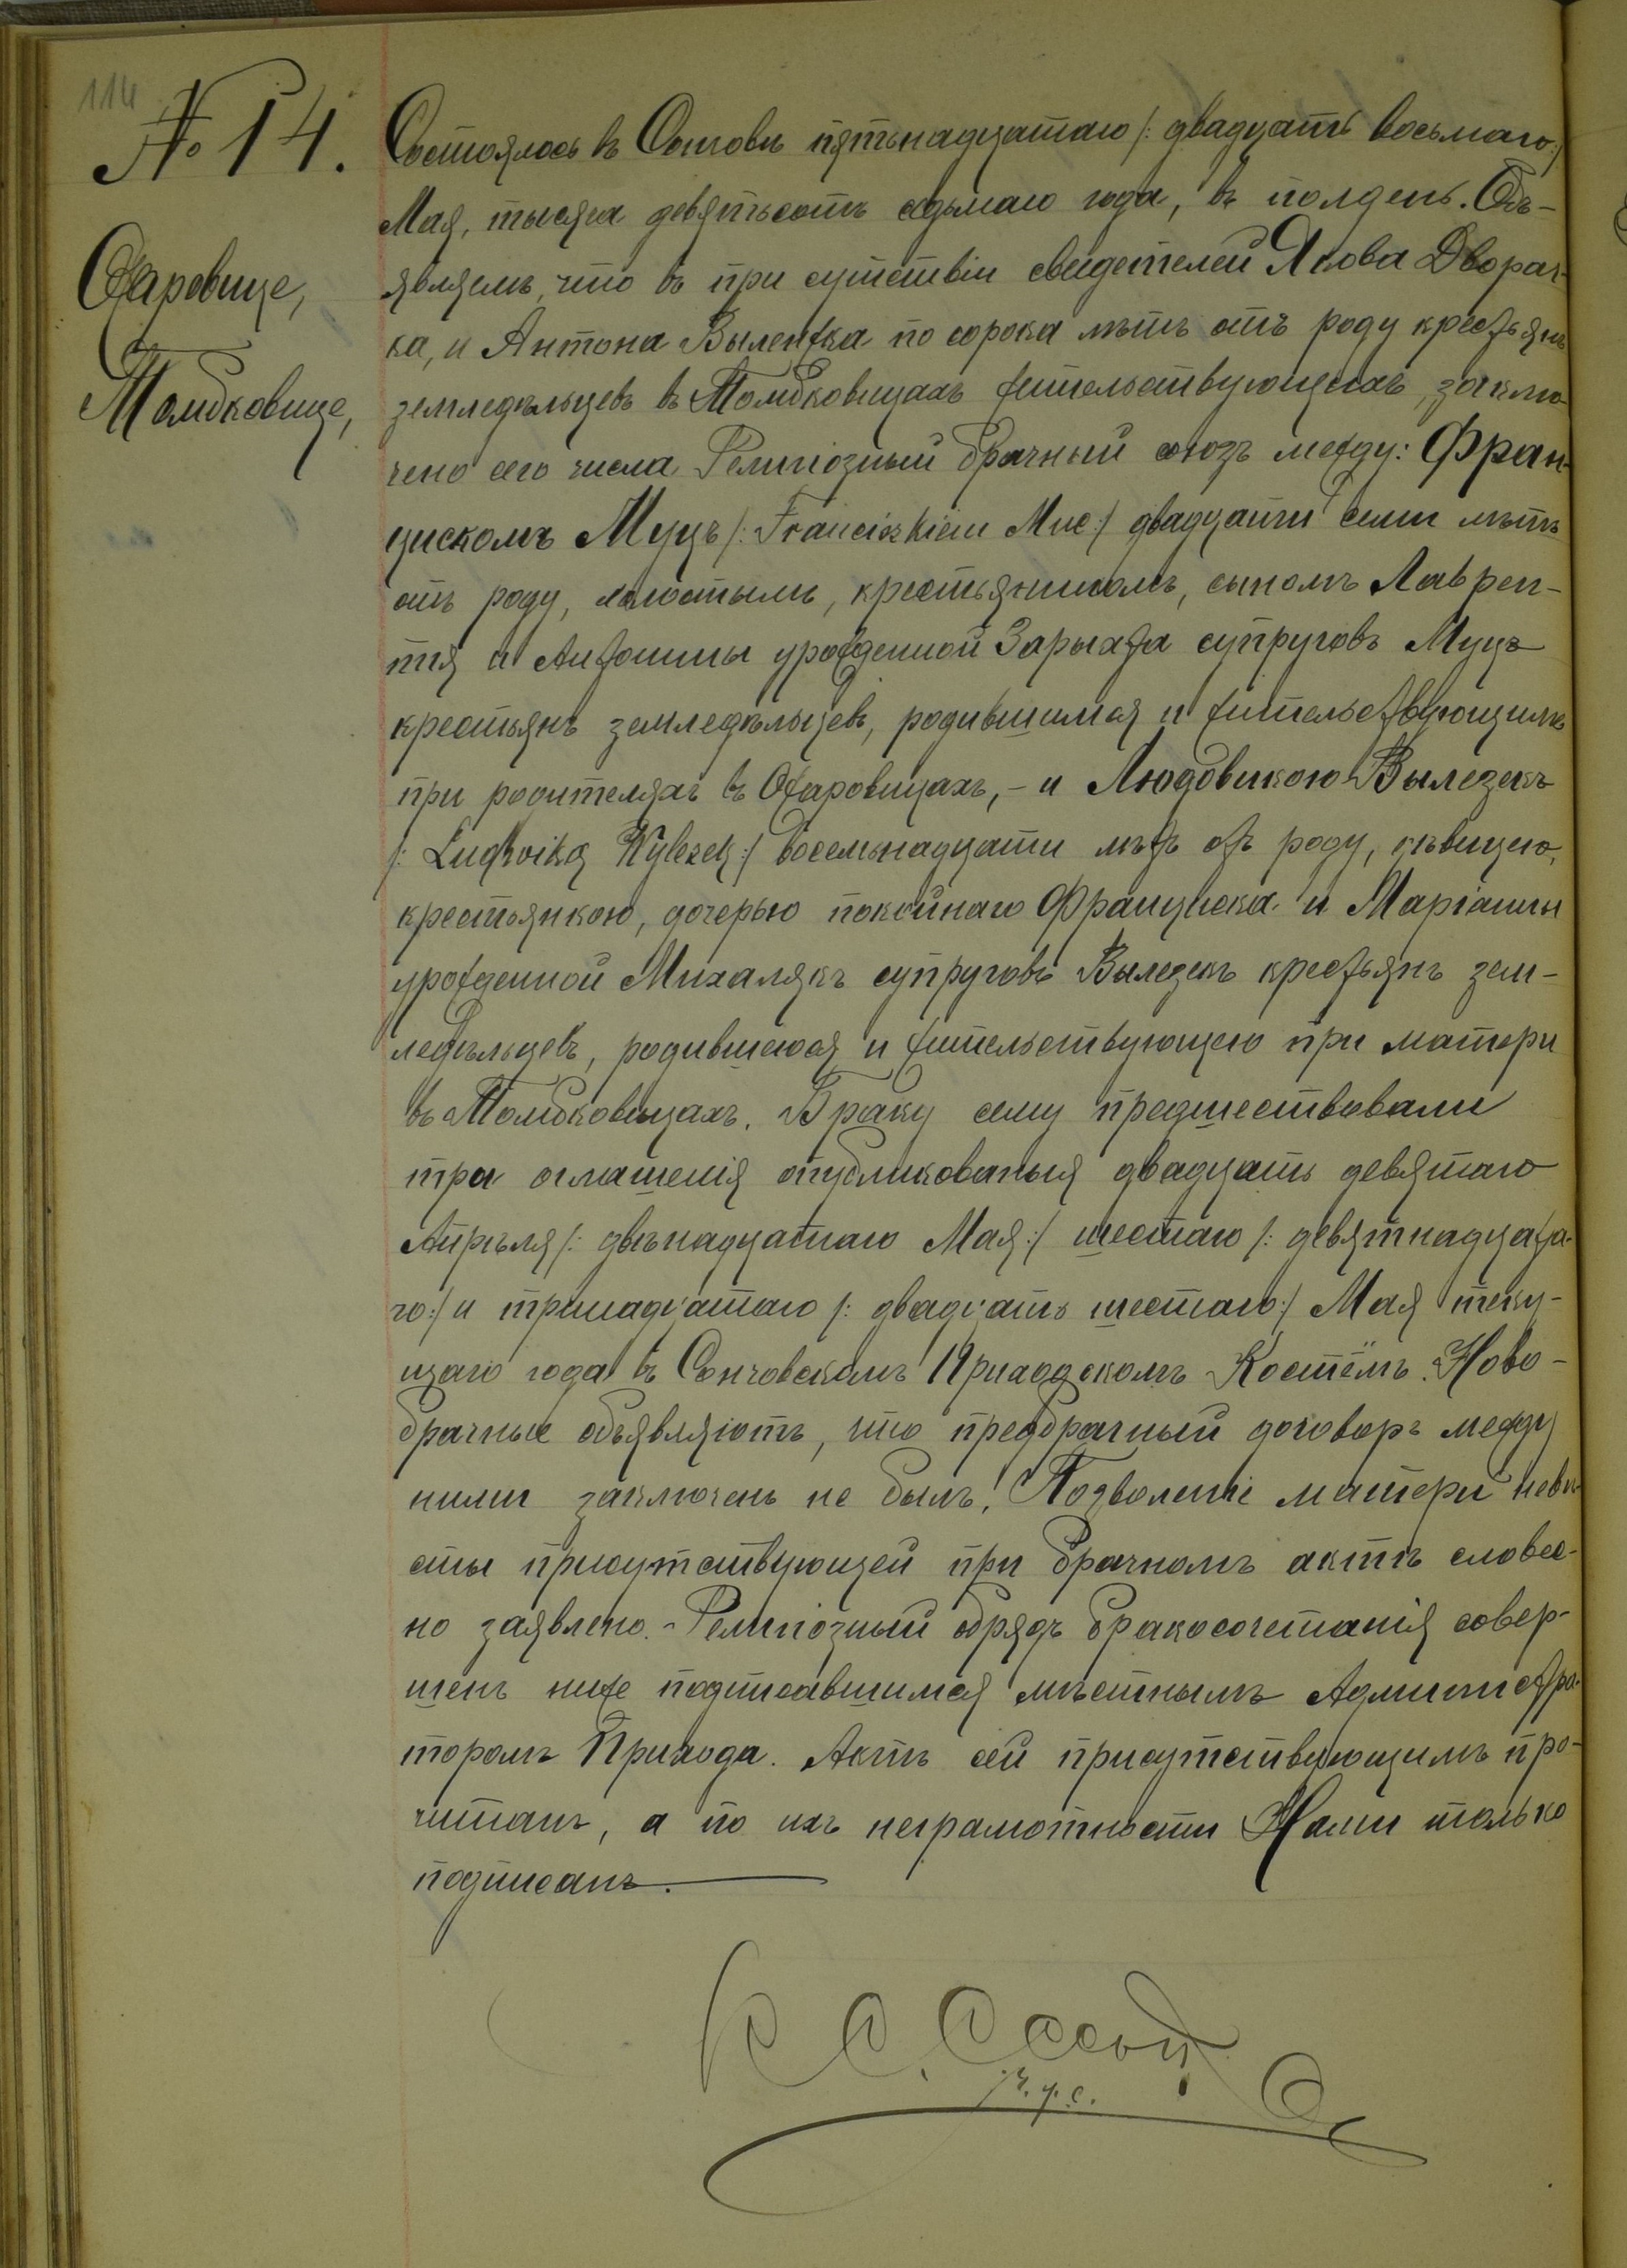 114
№ 14.
Ожаровице,
Томбковице,
Состоялось въ Сончовѣ пятьнадцатаго /: двадцать восьмаго :/
Мая, тысяча девятьсотъ седьмаго года, въ полдень. Объ-
являемъ, что въ при сутствіи свидетелей Якова Дворач-
ка, и Антона Вылежка по сорока лѣтъ отъ роду крестьянъ
земледѣльцевъ въ Томбковицахъ жительствующихъ, заклю-
чено сего числа Религіозный брачный союзъ между: Фран-
цискомъ Муцъ /: Franciszkiem Muc :/ двадцати семи лѣтъ
отъ роду, холостымъ, крестьяниномъ, сыномъ Лаврен-
тія и Антонины урожденной Зарыхта супруговъ Муцъ
крестьянъ земледѣльцевъ, родившимся и жительствующимъ
при родителяхъ въ Ожаровицахъ, – и Людовикою Вылезекъ
/: Ludwiką Wylezek :/ восемьнадцати лѣтъ отъ роду, дѣвицею,
крестьянкою, дочерью покойнаго Француиска и Маріанны
урожденной Михалякъ супруговъ Вылезекъ крестьянъ зем-
ледѣльцевъ, родившеюся и жительствующею при матери
въ Томбковицахъ. Браку сему предшествовали
три оглашенія опубликованыя двадцать девятаго
Апрѣля /: двѣнадцатаго Мая :/ шестаго /: девятнадцата-
го :/ и тринадцатаго /: двадцать шестаго :/ Мая теку-
щаго года въ Сончовскомъ Приходскомъ Костёлѣ. Ново-
брачные объявляютъ, что предбрачный договоръ между
ними заключенъ не былъ. Позволеніе матери невѣ-
сты присутствующей при брачномъ актѣ словес-
но заявлено. – Религіозный обрядъ бракосочетанія совер-
шенъ ниже подписавшимся мѣстнымъ Администра-
торомъ Прихода. Актъ сей присутствующимъ про-
читанъ, а по ихъ неграмотности Нами только
подписанъ.